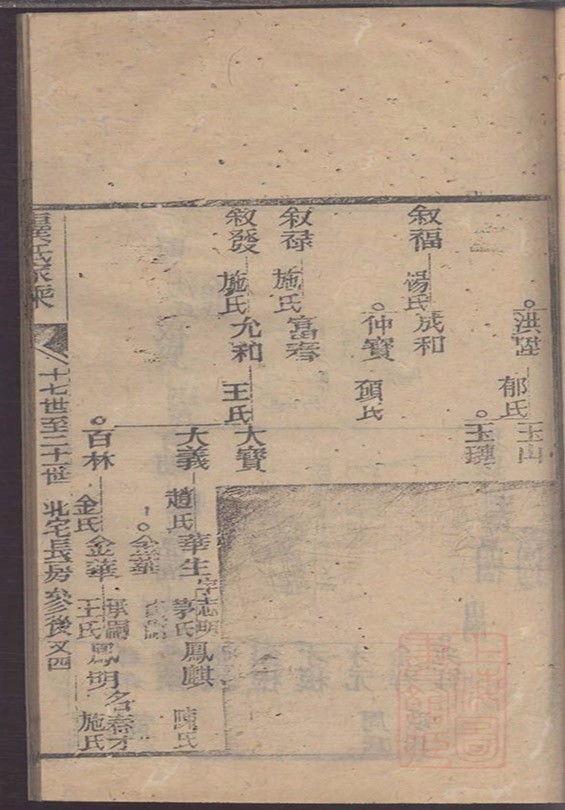 洪陞
郁氏
玉山
玉璉
叙福
楊氏
成和
仲寶
頋氏
叙禄
施氏
富春
叙發
施氏
允和
王氏
大寶
大義
趙氏
華生
字志明
茅氏
鳳麒
陳氏
金華
百林
金氏
金華
承嗣
王氏
鳳明
名春才
施氏
氏家乘
十七世至二十一世 北宅長房叅後又四